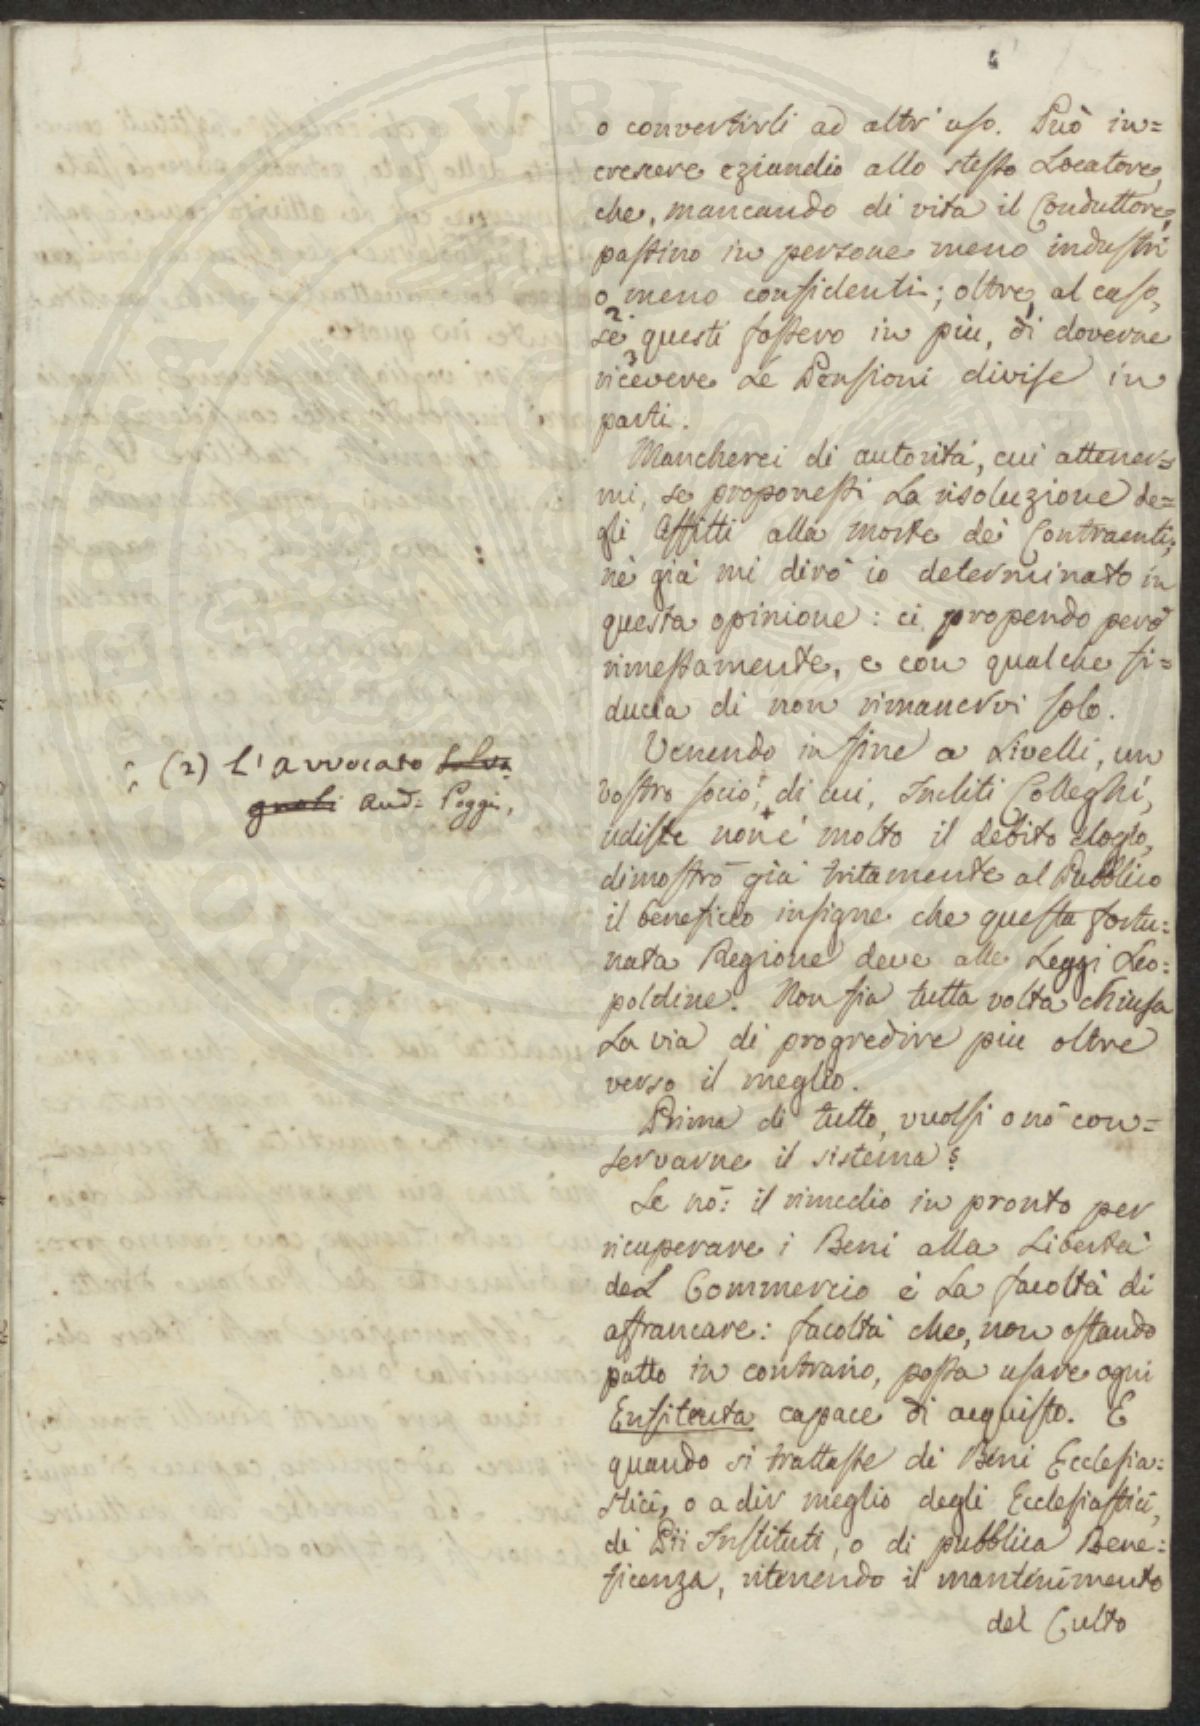 4
o convertirli ad altr' uso. Può in=
crescere eziandio allo stesso Locatore,
che, mancando di vita il Conduttore,
passino in persone meno industri
o meno confidenti; oltre al caso,
se questi fossero in più, di doverne
ricevere le Pensioni divise in
parti.
Mancherei di autorità, cui attener=
mi, se proponessi la risoluzione de=
gli Affitti alla morte de' Contraenti;
nè già mi dirò io determinato in
questa opinione: ci propendo però
rimessamente, e con qualche fi=
ducia di non rimanervi solo.
Venendo in fine a Livelli, un
Vostro socio, di cui, Incliti Colleghi,
udiste non è molto il debito elogio,
dimostrò già tritamente al Pubblico
il beneficio insigne che questa fortu=
nata Regione deve alle Leggi Leo=
poldine. Non sia tutta volta chiusa
la via di progredire più oltre
verso il meglio.
Prima di tutto, vuolsi o nò con=
servarne il sistema?
Se nò: il rimedio in pronto per
ricuperare i Beni alla Libertà
del Commercio è la facoltà di
affrancare: facoltà che, non ostando
patto in contrario, possa usare ogni
Enfiteuta capace di acquisto. E
quando si trattasse di Beni Ecclesia=
stici, o a dir meglio degli Ecclesiastici,
di Pii Instituti, o di pubblica Bene=
ficenza, ritenendo il mantenimento
del Culto
(2) L'avvocato Salva
gnoli Aud: Poggi.